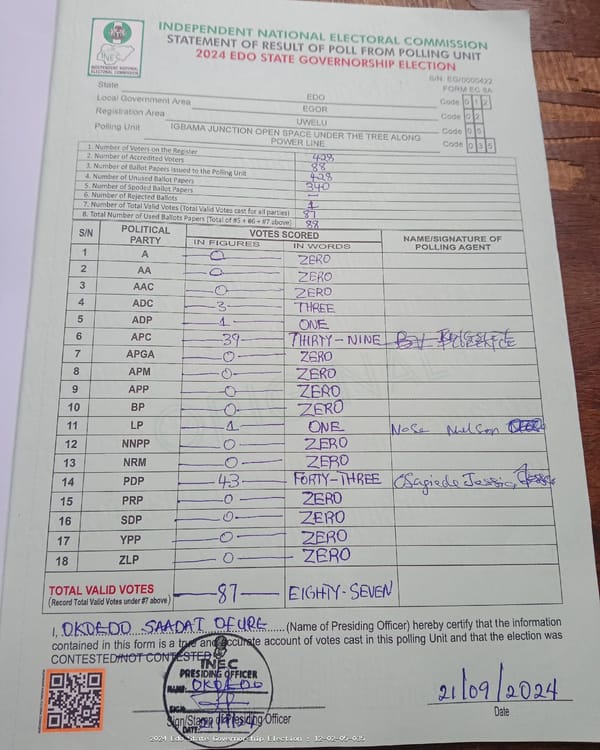 INDEPENDENT NATIONAL ELECTORAL COMMISSION
STATEMENT OF RESULT OF POLL FROM POLLING UNIT
2024 EDO STATE GOVERNORSHIP ELECTION
INEC
INDEPENDENT NATIONAL ELECTORAL COMMISSION
S/N: EG/0000422
FORM EC 8A
State EDO Code 012
Local Government Area EGOR Code 02
Registration Area UWELU Code 05
Polling Unit IGBAMA JUNCTION OPEN SPACE UNDER THE TREE ALONG POWER LINE Code 035
1. Number of Voters on the Register 428
2. Number of Accredited Voters 88
3. Number of Ballot Papers Issued to the Polling Unit 428
4. Number of Unused Ballot Papers 340
5. Number of Spoiled Ballot Papers —
6. Number of Rejected Ballots 1
7. Number of Total Valid Votes (Total Valid Votes cast for all parties) 87
8. Total Number of Used Ballots Papers (Total of #5 + #6 + #7 above) 88
S/N POLITICAL PARTY VOTES SCORED NAME/SIGNATURE OF POLLING AGENT
IN FIGURES IN WORDS
1 A 0 ZERO
2 AA 0 ZERO
3 AAC 0 ZERO
4 ADC 3 THREE
5 ADP 1 ONE
6 APC 39 THIRTY-NINE
7 APGA 0 ZERO
8 APM 0 ZERO
9 APP 0 ZERO
10 BP 0 ZERO
11 LP 1 ONE Nosa Nelson
12 NNPP 0 ZERO
13 NRM 0 ZERO
14 PDP 43 FORTY-THREE Osagiede Jessica
15 PRP 0 ZERO
16 SDP 0 ZERO
17 YPP 0 ZERO
18 ZLP 0 ZERO
TOTAL VALID VOTES 87 EIGHTY-SEVEN
(Record Total Valid Votes under #7 above)
I, OKOEDO SAADAT OFURE (Name of Presiding Officer) hereby certify that the information
contained in this form is a true and accurate account of votes cast in this polling Unit and that the election was
CONTESTED/NOT CONTESTED
INEC
PRESIDING OFFICER
NAME: OKOEDO
SIGN:
DATE:
Sign/Stamp of Presiding Officer
21/09/2024
Date
2024 Edo State Governorship Election : 12-02-05-035